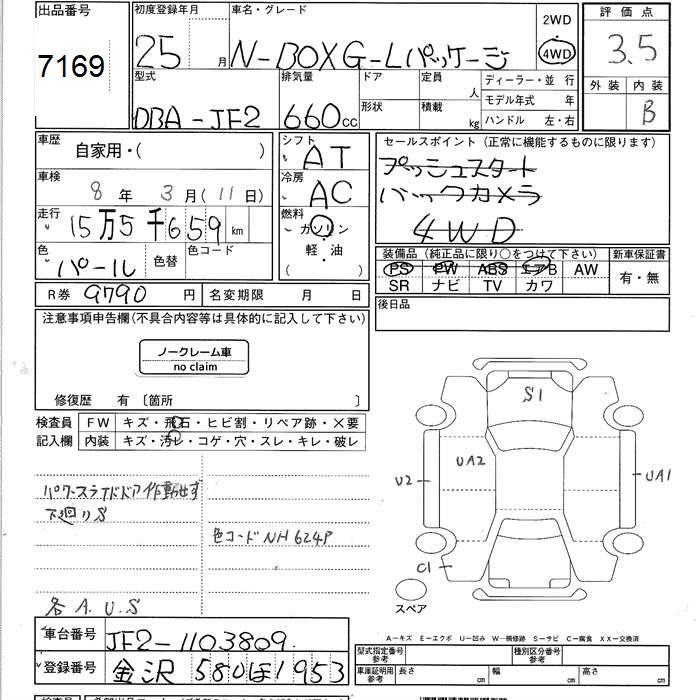 出品番号 初度登録年月 車名・グレード 2WD 評価点
7169 25 月 N-BOX G-Lパッケージ 4WD 3.5
型式 排気量 ドア 定員 人 ディーラー・並 行 外装 内装
DBA-JF2 660cc 形状 積載 kg モデル年式 年 B
ハンドル 左・右
車歴 自家用・( ) シフト AT セールスポイント (正常に機能するものに限ります)
プッシュスタート
車検 8年 3月(11日) 冷房 AC バックカメラ
走行 15万5千659km 燃料 ガソリン 4WD
軽・油
色 パール 色替 色コード 装備品 (純正品に限り○をつけて下さい) 新車保証書
PS PW ABS エアB AW 有・無
R券 9790 円 名変期限 月 日 SR ナビ TV カワ
注意事項申告欄(不具合内容等は具体的に記入して下さい) 後日品
ノークレーム車
no claim
修復歴 有 〔箇所 〕
検査員 FW キズ・飛石・ヒビ割・リペア跡・×要
記入欄 内装 キズ・汚レ・コゲ・穴・スレ・キレ・破レ
S1
UA2
U2
UA1
C1
パワースライドドア作動せず
下廻りS
色コードNH624P
各A.U.S
スペア
A－キズ E－エクボ U－凹み W－補修跡 S－サビ C－腐食 XX－交換済
車台番号 JF2-1103809 型式指定番号 参考 種別区分番号 参考
登録番号 金沢 580 ほ 1953 車庫証明用 参考 長さ cm 幅 cm 高さ cm